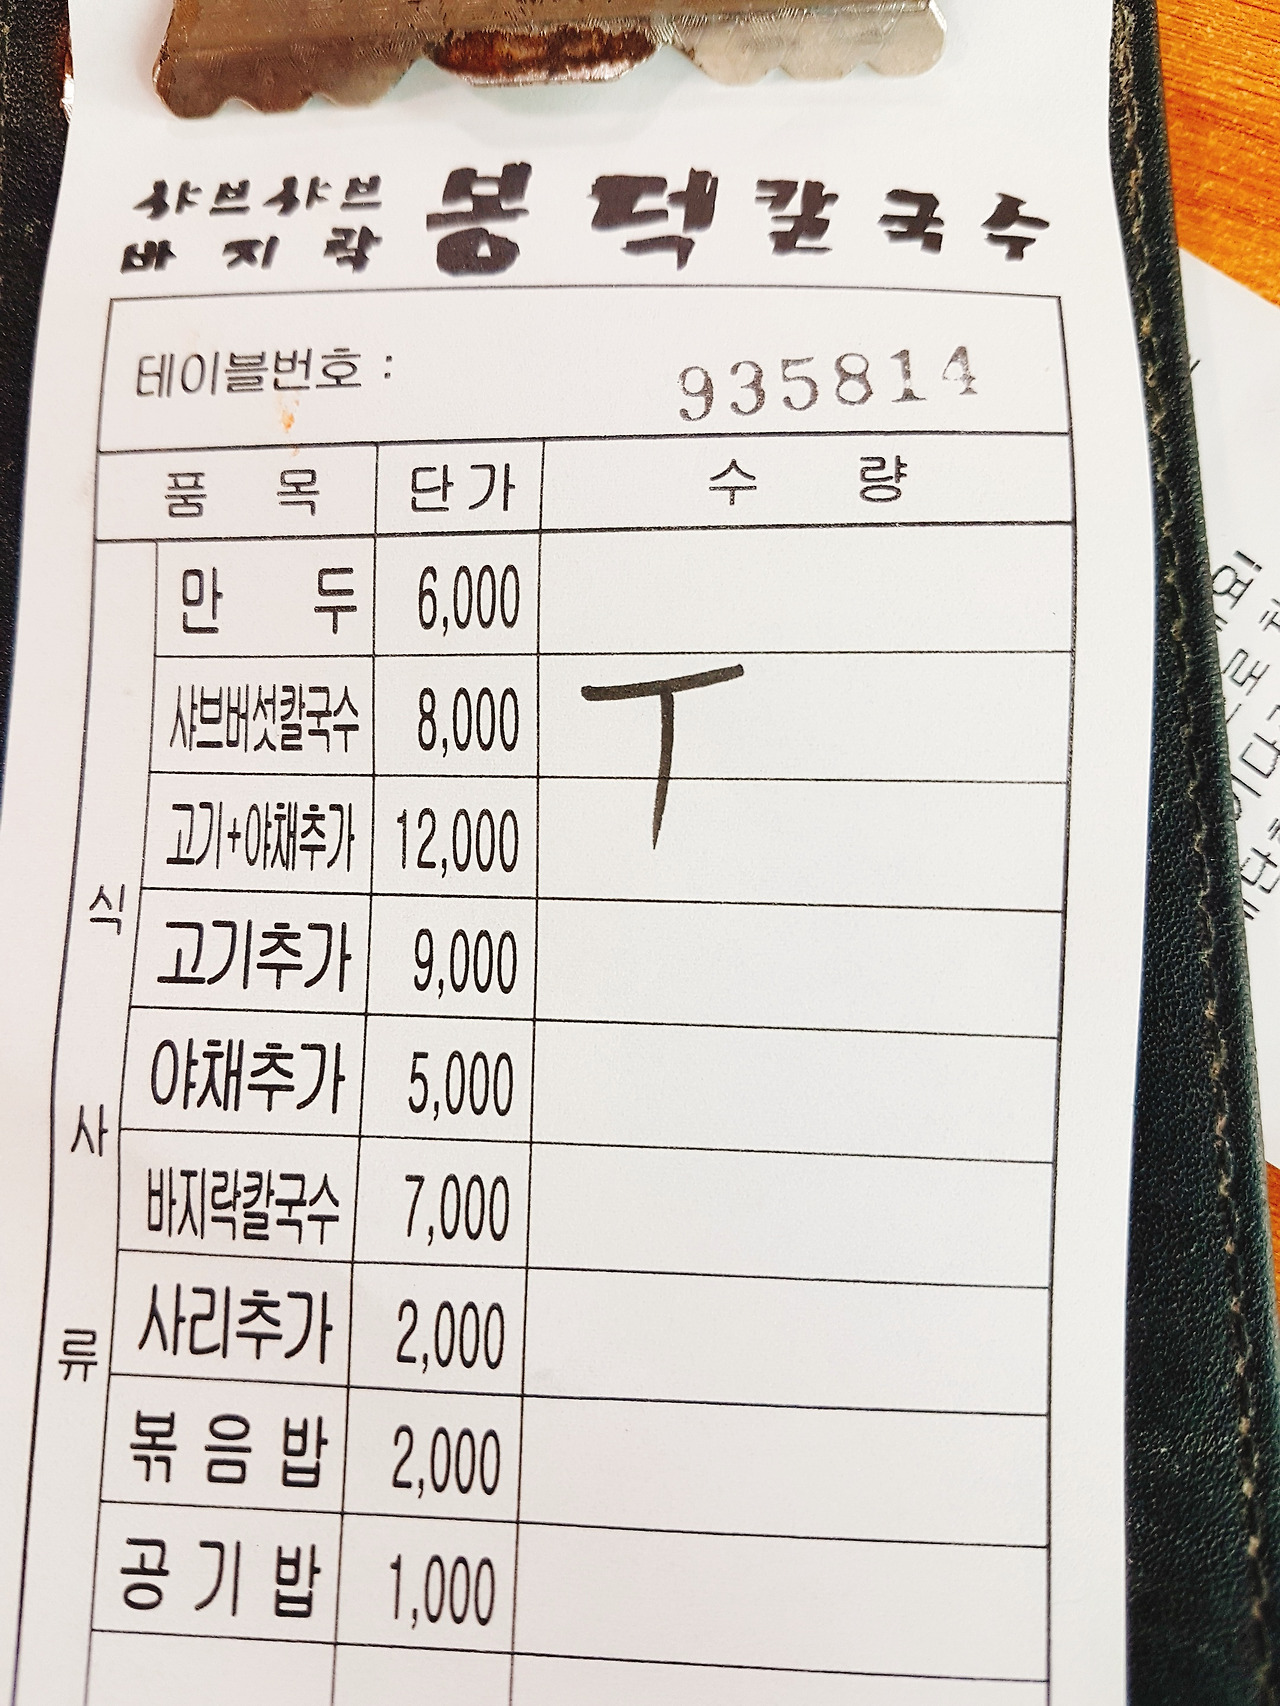 샤브샤브 바지락 봉덕칼국수
테이블번호 : 935814
품목 단가 수량
식사류
만두 6,000
샤브버섯칼국수 8,000 ㅜ
고기+야채추가 12,000
고기추가 9,000
야채추가 5,000
바지락칼국수 7,000
사리추가 2,000
볶음밥 2,000
공기밥 1,000